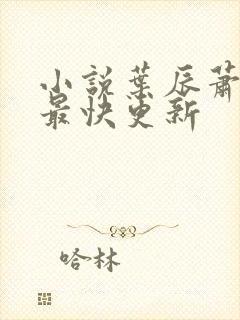 小説葉辰蕭
最快更新
哈林